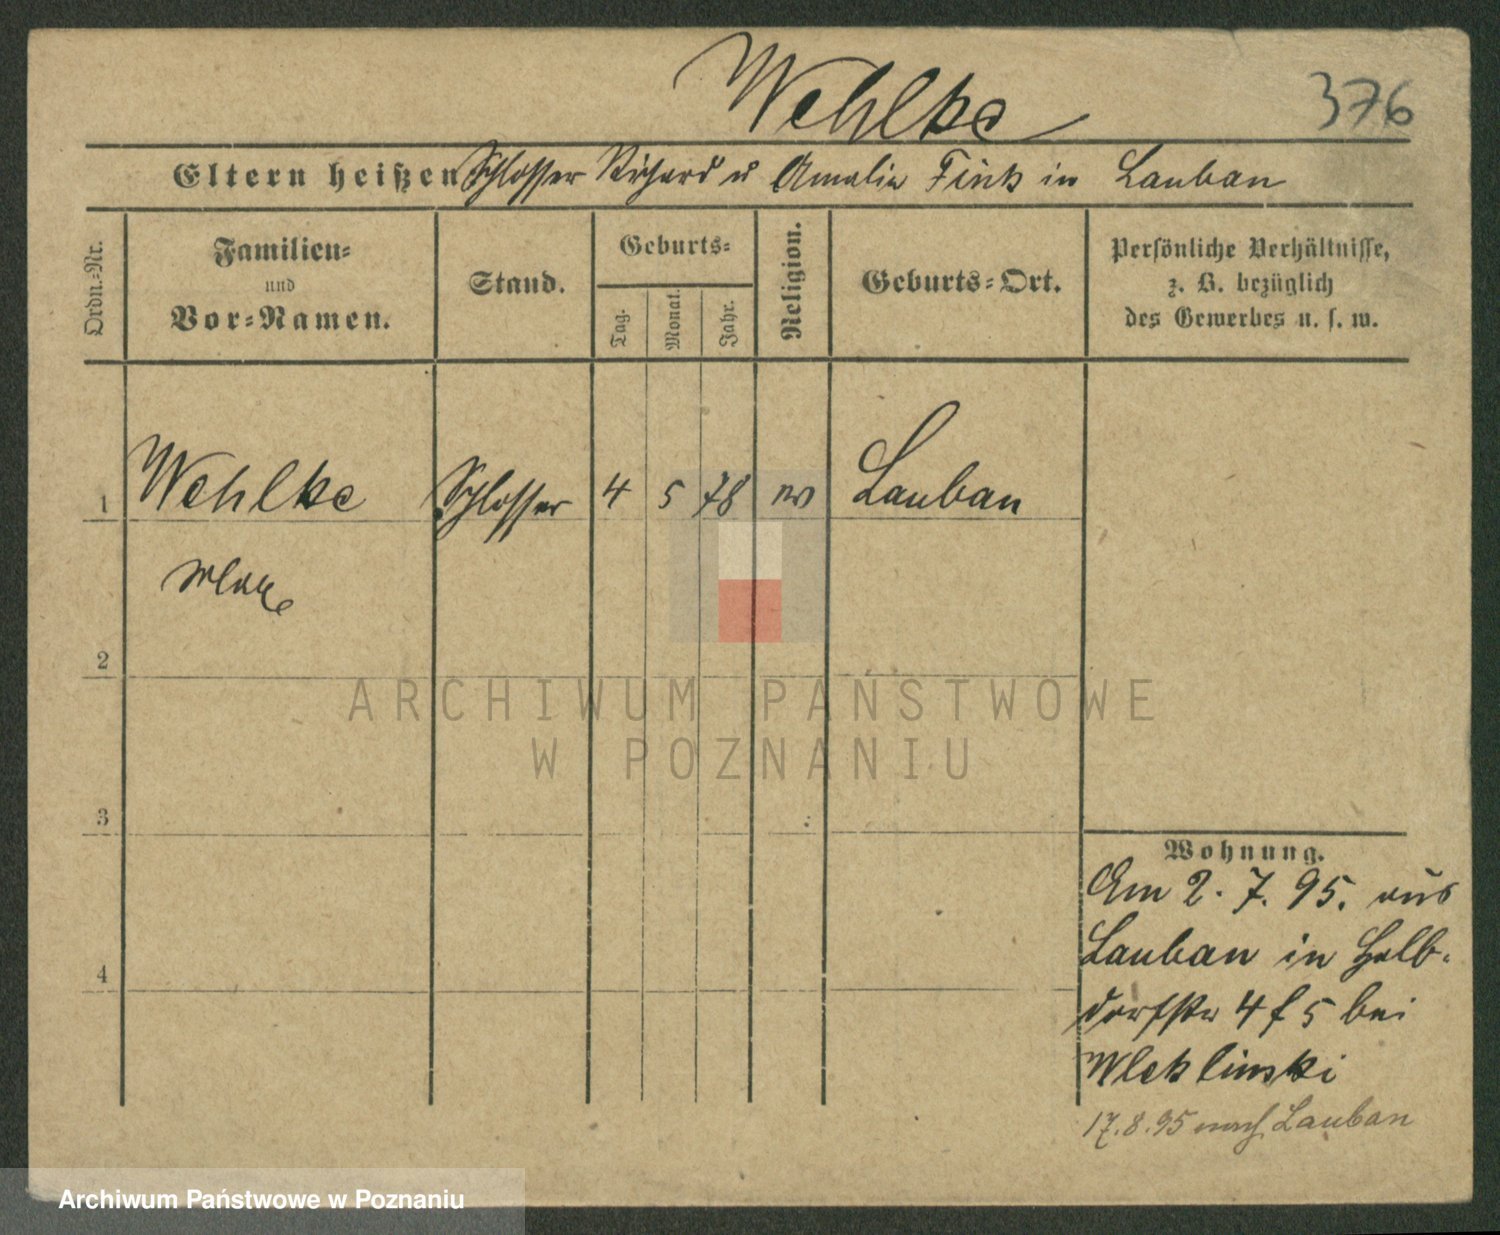 Wehlke
376
Eltern heißen Schlosser Richard u Amalie Fink in Lauban
Ordn.-Nr.
Familien-
und
Vor-Namen.
Stand.
Geburts-
Tag.
Monat.
Jahr.
Religion.
Geburts-Ort.
Persönliche Verhältnisse,
z. B. bezüglich
des Gewerbes u. s. w.
1 Wehlke Schlosser 4 5 78 ev Lauban
Max
2
3
4
Wohnung.
Am 2. 7. 95. aus
Lauban in Halb-
dorfstr 4/5 bei
Wleklinski
17.8.95 nach Lauban
ARCHIWUM PAŃSTWOWE
W POZNANIU
Archiwum Państwowe w Poznaniu